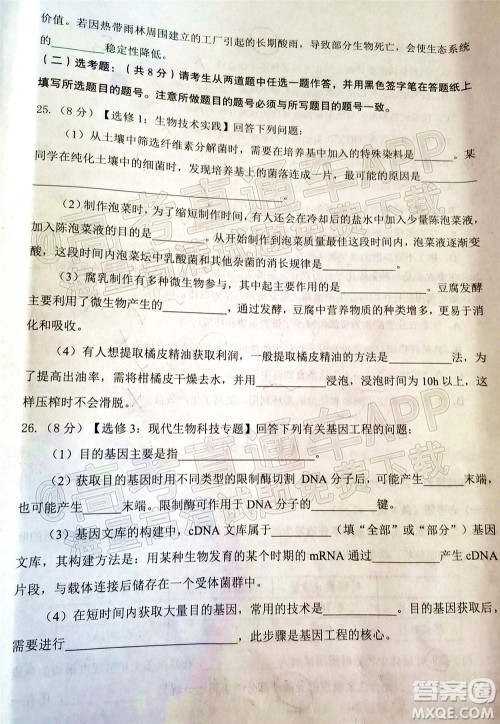 价值。若因热带雨林周围建立的工厂引起的长期酸雨，导致部分生物死亡，会使生态系统
的________稳定性降低。
（二）选考题：（共8分）请考生从两道题中任选一题作答，并用黑色签字笔在答题卡上
填写所选题目的题号。注意所做题目的题号必须与所写题号一致。
25.（8分）【选修1：生物技术实践】回答下列问题：
（1）从土壤中筛选纤维素分解菌时，需要在培养基中加入的特殊染料是______。某
同学在纯化土壤中的细菌时，发现培养基上的菌落连成一片，最可能的原因是________
________________。
（2）制作泡菜时，为了缩短制作时间，有人还会在冷却后的盐水中加入少量陈泡菜液，
加陈泡菜液的目的是________。从开始制作到泡菜品质最佳这段时间内，泡菜液逐渐变
酸，这段时间内泡菜坛中乳酸菌和其他杂菌的消长规律是________________。
（3）腐乳制作有多种微生物参与，其中起主要作用的是________。豆腐发酵
主要利用了微生物产生的________，通过发酵，豆腐中营养物质的种类增多，更易于消
化和吸收。
（4）有人想提取橘皮精油获取利润，一般提取橘皮精油的方法是________，为
了提高出油率，需将柑橘皮干燥去水，并用________浸泡，浸泡时间为10h以上，这
样压榨时不会滑脱。
26.（8分）【选修3：现代生物科技专题】回答下列有关基因工程的问题：
（1）目的基因主要是指________________。
（2）获取目的基因时用不同类型的限制酶切割DNA分子后，可能产生______末端，
也可能产生______末端。限制酶可作用于DNA分子的________键。
（3）基因文库的构建中，cDNA文库属于______（填“全部”或“部分”）基因
文库，其构建方法是：用某种生物发育的某个时期的mRNA通过________产生cDNA
片段，与载体连接后储存在一个受体菌群中。
（4）在短时间内获取大量目的基因，常用的技术是________。目的基因获取后，
需要进行________________，此步骤是基因工程的核心。
@高考直通车APP
答案圈
MXQE.COM